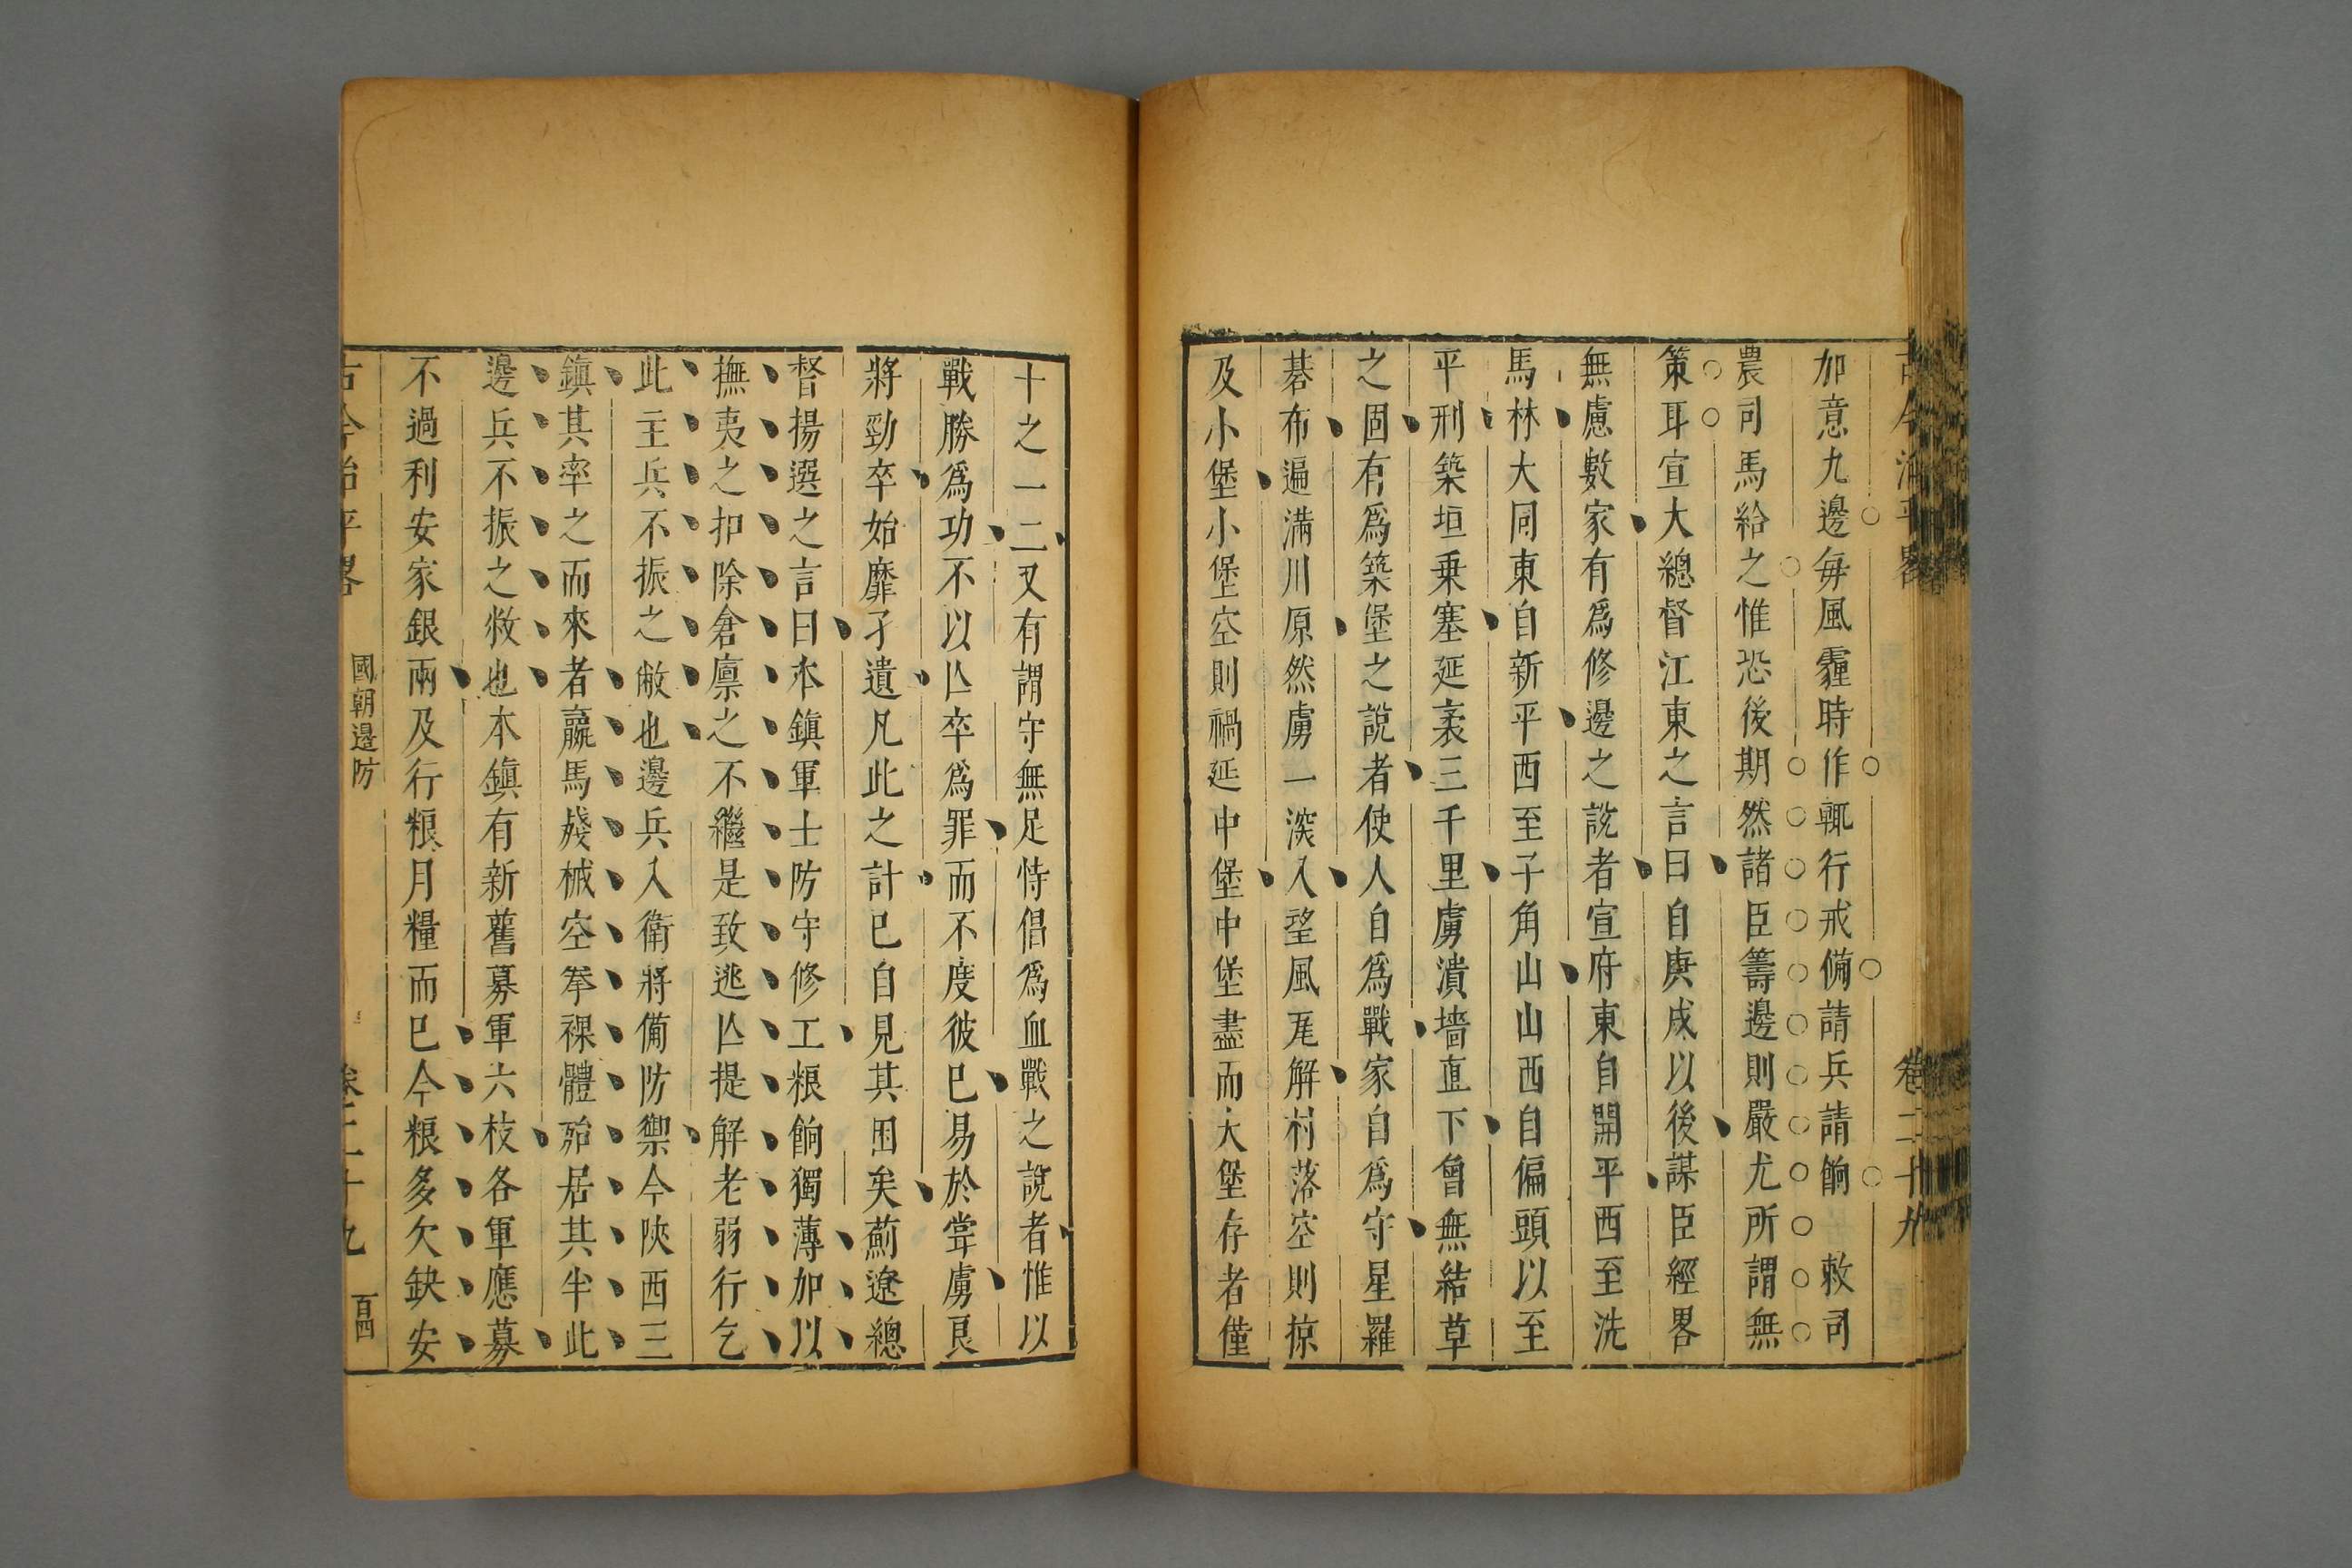 卷二十九
加意九邊每風霾時作輒行戒備請兵請餉 敕司
農司馬給之惟恐後期然諸臣籌邊則嚴尤所謂無
策耳宣大總督江東之言曰自庚戌以後謀臣經畧
無慮數家有爲修邊之說者宣府東自開平西至洗
馬林大同東自新平西至子角山山西自偏頭以至
平刑築垣乗塞延袤三千里虜潰墻直下曾無結草
之固有爲築堡之說者使人自爲戰家自爲守星羅
碁布遍滿川原然虜一深入望風瓦解村落空則掠
及小堡小堡空則禍延中堡中堡盡而大堡存者僅
十之一二又有謂守無足恃倡爲血戰之說者惟以
戰勝爲功不以亾卒爲罪而不度彼巳易於甞虜良
將勁卒始靡孑遺凡此之計巳自見其困矣薊遼總
督揚選之言曰本鎮軍士防守修工粮餉獨薄加以
撫夷之扣除倉廪之不繼是致逃亾提解老弱行乞
此主兵不振之敝也邊兵入衛將備防禦今陜西三
鎮其率之而來者羸馬殘械空拳裸體殆居其半此
邊兵不振之敝也本鎮有新舊募軍六枝各軍應募
不過利安家銀兩及行粮月糧而巳今粮多欠缺安
古今治平畧 國朝邊防 卷二十九 百四